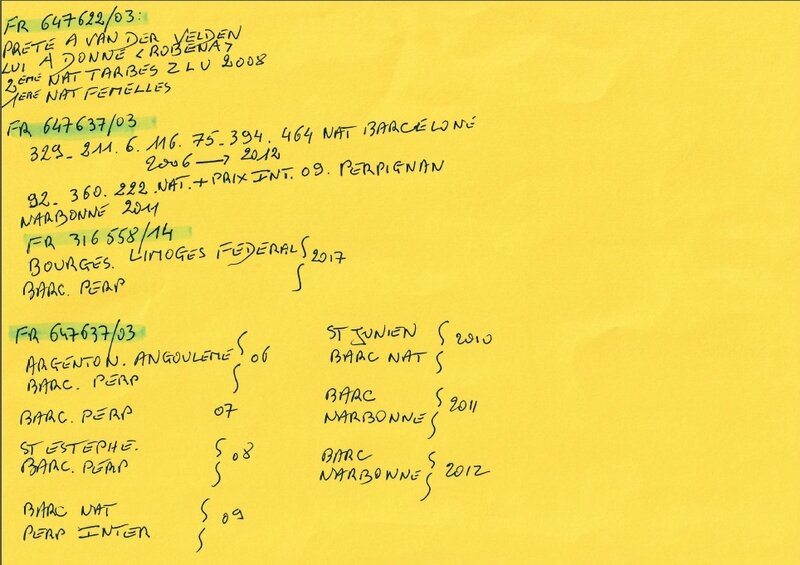 FR 647622/03:
PRETE A VAN DER VELDEN
LUI A DONNÉ < ROBENA >
2ÈME NAT TARBES ZLU 2008
1ERE NAT FEMELLES
FR 647637/03
329_ 211. 6. 116. 75_ 394. 464 NAT BARCELONE
2006 → 2012
92_ 360. 222 NAT. + PRIX INT. 09. PERPIGNAN
NARBONNE 2011
FR 316558/14
BOURGES. LIMOGES FEDERAL
BARC. PERP } 2017
FR 647637/03
ARGENTON. ANGOULEME
BARC. PERP } 06
BARC. PERP 07
ST ESTEPHE.
BARC. PERP } 08
BARC NAT
PERP INTER } 09
ST JUNIEN
BARC NAT } 2010
BARC
NARBONNE } 2011
BARC
NARBONNE } 2012